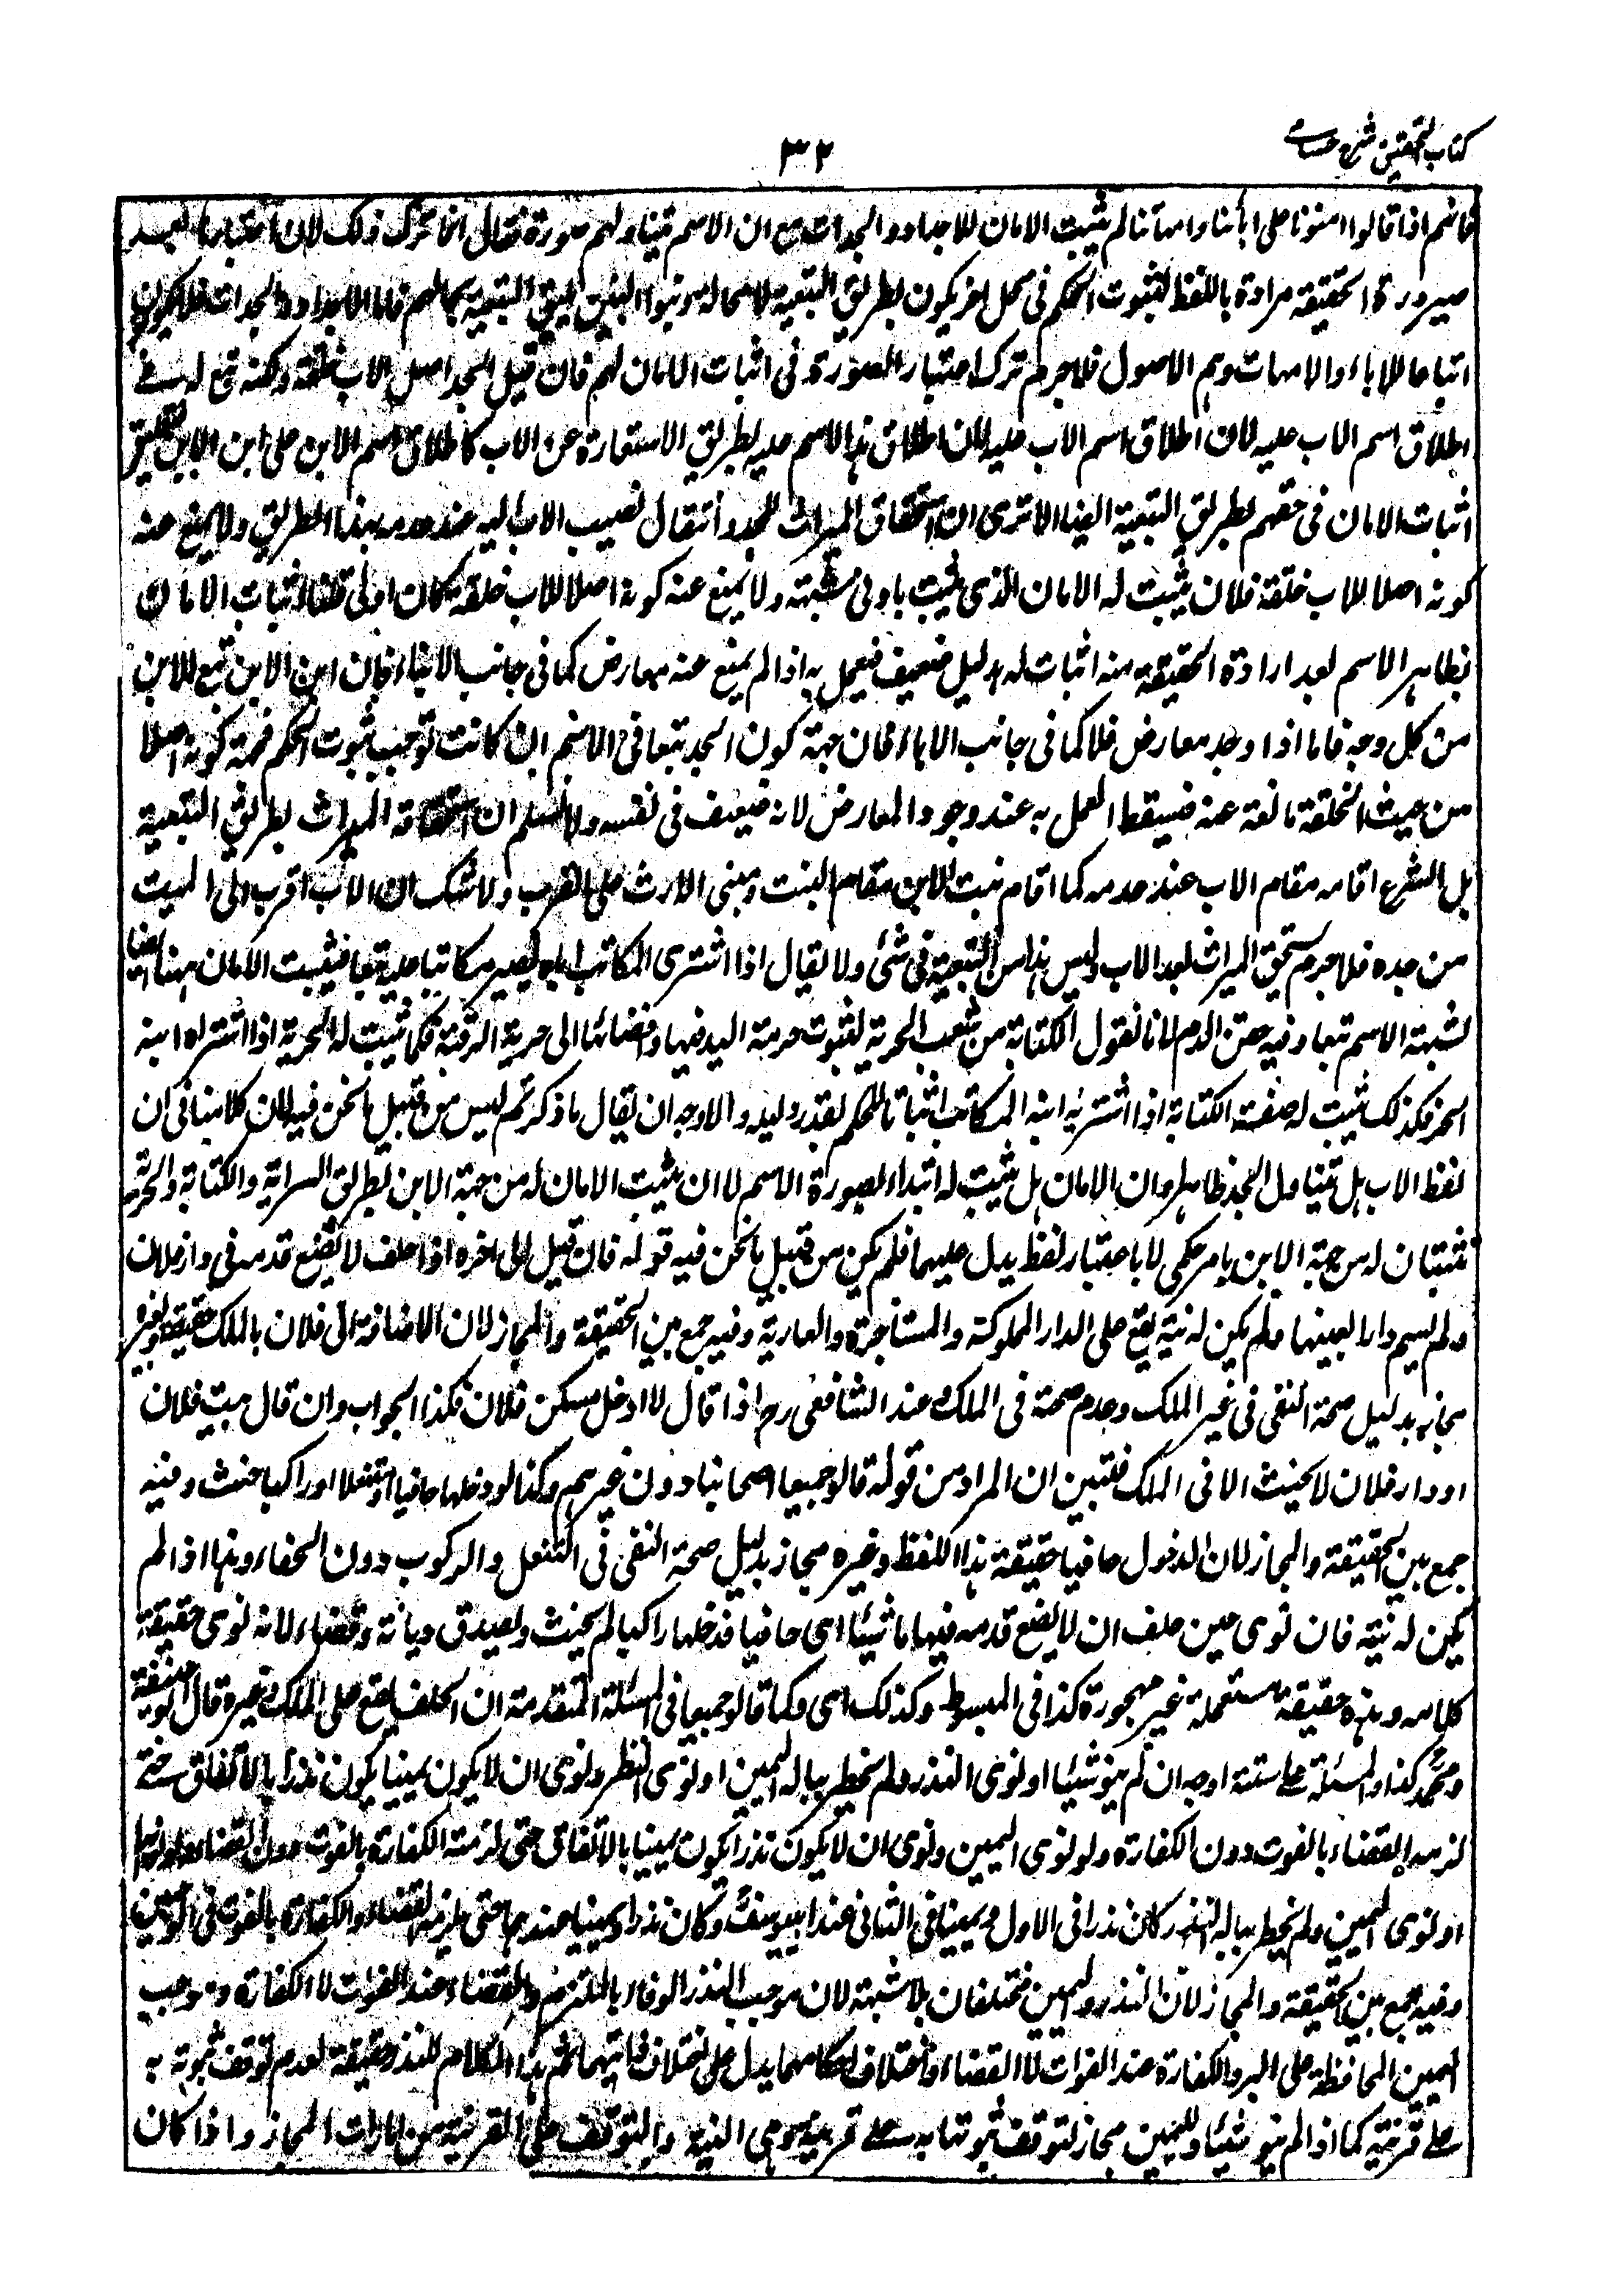 كتاب التحقيق شرح حسامى
٣٢
فانهم اذا قالوا امنونا على ابائنا وامهاتنا لم يثبت الامان للاجداد والجدات مع ان الاسم يتناولهم صورة فقال انما ترك ذلك لان اعتبارها لعيد
صيرورة الحقيقة مرادة باللفظ لثبوت الحكم فى محل اخر يكون بطريق التبعية لا محالة وبنوا البنين يليق التبعية بحالهم فاما الاجداد والجدات فلا يكونون
اتباعا للاباء والامهات وهم الاصول فلا جرم ترك اعتبار الصورة فى اثبات الامان لهم فان قيل الجد اصل الاب خلقة ولكنه تبع له فى
اطلاق اسم الاب عليه لان اطلاق هذا الاسم عليه بطريق الاستعارة عن الاب كاطلاق اسم الابن على ابن الابن فيليق
اثبات الامان فى حقهم بطريق التبعية ايضا الا ترى ان استحقاق الميراث للجد وانتقال نصيب الاب اليه عند عدمه بهذا الطريق ولا يمنع عنه
كونه اصلا للاب خلقة فلان يثبت له الامان الذى يثبت بادنى شبهة ولا يمنع عنه كونه اصلا للاب خلقة كان اولى قلنا اثبات الامان
بظاهر الاسم بعد ارادة الحقيقة منه اثبات له بدليل ضعيف فيعمل به اذا لم يمنع عنه معارض كما فى جانب الابناء فان ابن الابن تبع للابن
من كل وجه فاما اذا وجد معارض فلا كما فى جانب الاباء فان جهة كون الجد تبعا فى الاسم ان كانت توجب ثبوت الحكم فجهة كونه اصلا
من حيث الخلقة مانعة عنه فيسقط العمل به عند وجود المعارض لانه ضعيف فى نفسه ولا نسلم ان استحقاقه الميراث بطريق التبعية
بل الشرع اقامه مقام الاب عند عدمه كما اقام بنت الابن مقام البنت ومبنى الارث على القرب ولا شك ان الاب اقرب الى الميت
من جده فلا جرم يستحق الميراث بعد الاب وليس هذا من التبعية فى شئ ولا يقال اذا اشترى المكاتب اباه يصير مكاتبا عليه تبعا فيثبت الامان ههنا ايضا
لشبهة الاسم تبعا وفيه حقن الدم لانا نقول الكتابة من شعب الحرية لثبوت حرمة اليد فيها وافضائها الى حرية الرقبة فكما ثبت له الحرية اذا اشتراه ابنه
الحر فكذلك ثبت له صفة الكتابة اذا اشتريه ابنه المكاتب اثباتا للحكم بقدر دليله والاوجه ان يقال ما ذكرتم ليس من قبيل ما نحن فيه لان كلامنا فى ان
لفظ الاب هل يتناول الجد ظاهرا وان الامان هل يثبت له ابتداء بصورة الاسم لا ان يثبت الامان له من جهة الابن بطريق السراية والكتابة والحرية
تثبتان له من جهة الابن بامر حكمى لا باعتبار لفظ يدل عليهما فلم يكن من قبيل ما نحن فيه قوله فان قيل الى اخره اذا حلف لا يضع قدمه فى دار فلان
ولم يسم دارا بعينها ولم يكن له نية يقع على الدار المملوكة والمستاجرة والعارية وفيه جمع بين الحقيقة والمجاز لان الاضافة الى فلان بالملك حقيقة وبغيره
مجاز بدليل صحة النفى فى غير الملك وعدم صحته فى الملك وعند الشافعى رح اذا قال لا ادخل مسكن فلان فكذا الجواب وان قال بيت فلان
او دار فلان لا يحنث الا فى الملك فتبين ان المراد من قوله قالوا جميعا اصحابنا دون غيرهم وكذا لو دخلها حافيا او متنعلا او راكبا حنث وفيه
جمع بين الحقيقة والمجاز لان الدخول حافيا حقيقة هذا اللفظ وغيره مجاز بدليل صحة النفى فى التنعل والركوب دون الحفاء وهذا اذا لم
يكن له نية فان نوى حين حلف ان لا يضع قدمه فيها ماشيا اى حافيا فدخلها راكبا لم يحنث ويصدق ديانة وقضاء لانه نوى حقيقة
كلامه وهذه حقيقة مستعملة غير مهجورة كذا فى المبسوط وكذلك اى وكما قالوا جميعا فى المسئلة المتقدمة ان الحلف يقع على الملك وغيره قال ابو حنيفة
ومحمد كذا والمسئلة على ستة اوجه ان لم ينو شيئا او نوى النذر ولم يخطر بباله اليمين او نوى النظر ونوى ان لا يكون يمينا يكون نذرا بالاتفاق حتى
لزمه القضاء بالفوت دون الكفارة ولو نوى اليمين ونوى ان لا يكون نذرا يكون يمينا بالاتفاق حتى لزمته الكفارة بالفوت دون القضاء ولو نواهما
او نوى اليمين ولم يخطر بباله النذر كان نذرا فى الاول ويمينا فى الثانى عند ابى يوسف وكان نذرا ويمينا عندهما حتى يلزمه القضاء والكفارة بالفوت فى الوجهين
وفيه جمع بين الحقيقة والمجاز لان النذر واليمين مختلفان بلا شبهة لان موجب النذر الوفاء بالملتزم والقضاء عند الفوات لا الكفارة وموجب
اليمين المحافظة على البر والكفارة عند الفوات لا القضاء واختلاف احكامهما يدل على اختلاف ذاتيهما ثم هذا الكلام للنذر حقيقة لعدم توقف ثبوته به
على قرينة كما اذا لم ينو شيئا ولليمين مجاز لتوقف ثبوتها به على قرينة وهى النية والتوقف على القرينة من امارات المجاز واذا كان